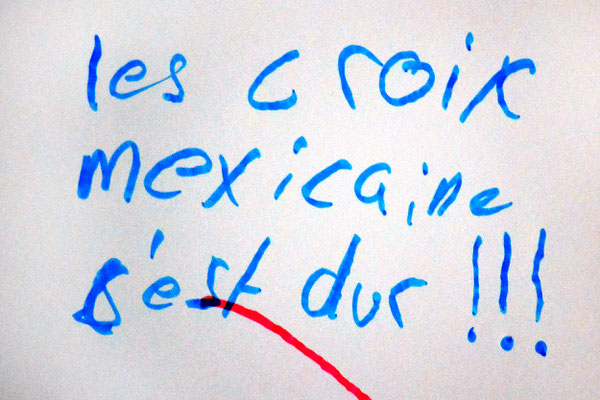 les croix
mexicaine
s'est dur !!!